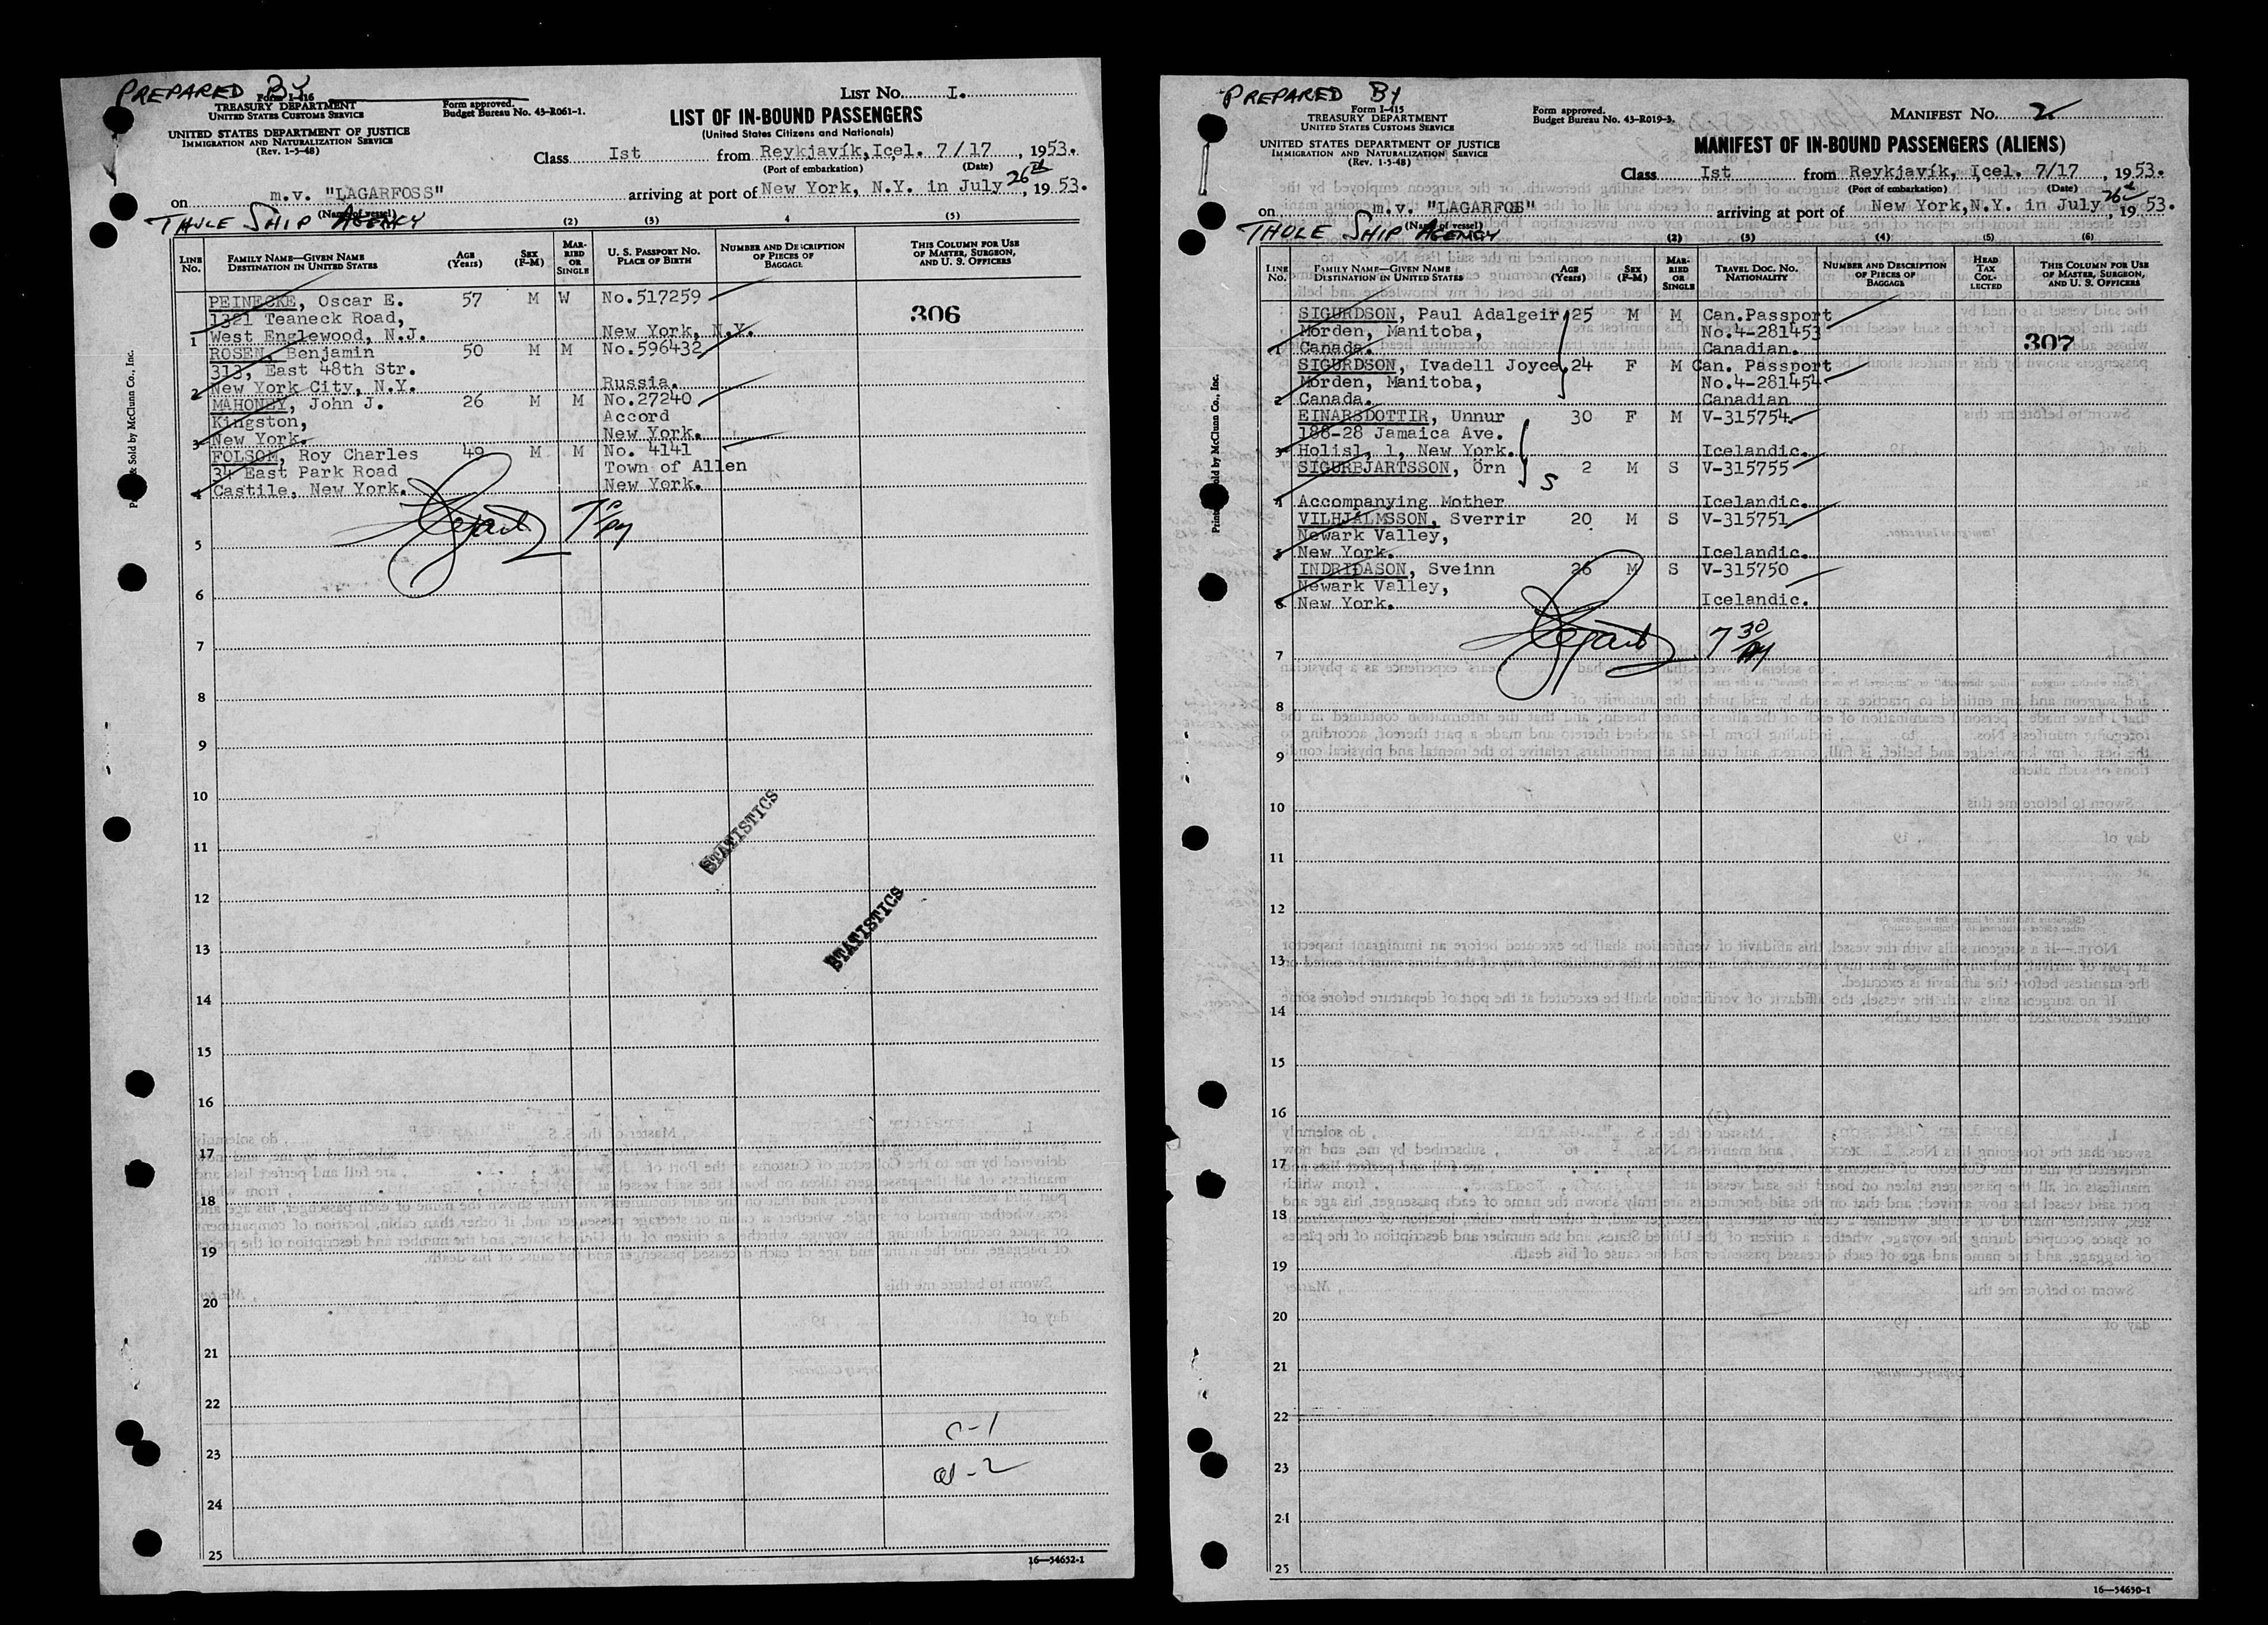 PREPARED BY
Form I-416
TREASURY DEPARTMENT
UNITED STATES CUSTOMS SERVICE
UNITED STATES DEPARTMENT OF JUSTICE
IMMIGRATION AND NATURALIZATION SERVICE
(Rev. 1-5-48)
Form approved.
Budget Bureau No. 43-R061-1.
LIST No. I.
LIST OF IN-BOUND PASSENGERS
(United States Citizens and Nationals)
Class Ist from Reykjavík, Icel. 7/17, 1953.
(Port of embarkation) (Date)
on m.v. "LAGARFOSS" arriving at port of New York, N.Y. in July 26th, 1953.
(Name of vessel)
THULE SHIP AGENCY
(2) (3) 4 (5)
LINE No.
FAMILY NAME—GIVEN NAME
DESTINATION IN UNITED STATES
AGE (Years)
SEX (F-M)
MARRIED OR SINGLE
U. S. PASSPORT No.
PLACE OF BIRTH
NUMBER AND DESCRIPTION OF PIECES OF BAGGAGE
THIS COLUMN FOR USE OF MASTER, SURGEON, AND U. S. OFFICERS
PEINECKE, Oscar E. 57 M W No.517259
306
1321 Teaneck Road,
1 West Englewood, N.J. New York, N.Y.
ROSEN, Benjamin 50 M M No.596432
313, East 48th Str.
2 New York City, N.Y. Russia.
MAHONEY, John J. 26 M M No.27240
Kingston, Accord
3 New York. New York.
FOLSOM, Roy Charles 49 M M No. 4141
34 East Park Road Town of Allen
4 Castile, New York. New York.
5
6
7
8
9
10
11
12
13
14
15
16
17
18
19
20
21
22
23
24
25
STATISTICS
STATISTICS
16—54652-1
PREPARED BY
Form I-415
TREASURY DEPARTMENT
UNITED STATES CUSTOMS SERVICE
UNITED STATES DEPARTMENT OF JUSTICE
IMMIGRATION AND NATURALIZATION SERVICE
(Rev. 1-5-48)
Form approved.
Budget Bureau No. 43-R019-3.
MANIFEST No. 2
MANIFEST OF IN-BOUND PASSENGERS (ALIENS)
Class Ist from Reykjavík, Icel. 7/17, 1953.
(Port of embarkation) (Date)
on m.v. "LAGARFOSS" arriving at port of New York, N.Y. in July 26, 1953.
(Name of vessel)
THULE SHIP AGENCY
(2) (3) (4) (5) (6)
LINE No.
FAMILY NAME—GIVEN NAME
DESTINATION IN UNITED STATES
AGE (Years)
SEX (F-M)
MARRIED OR SINGLE
TRAVEL DOC. No.
NATIONALITY
NUMBER AND DESCRIPTION OF PIECES OF BAGGAGE
HEAD TAX COLLECTED
THIS COLUMN FOR USE OF MASTER, SURGEON, AND U. S. OFFICERS
SIGURDSON, Paul Adalgeir, 25 M M Can.Passport
Morden, Manitoba, No.4-281453
1 Canada. Canadian.
307
SIGURDSON, Ivadell Joyce, 24 F M Can. Passport
Morden, Manitoba, No.4-281454
2 Canada. Canadian
EINARSDOTTIR, Unnur 30 F M V-315754
188-28 Jamaica Ave.
3 Holisl, 1, New York. Icelandic.
SIGURBJARTSSON, Örn 2 M S V-315755
4 Accompanying Mother Icelandic.
VILHJÁLMSSON, Sverrir 20 M S V-315751
Newark Valley,
5 New York. Icelandic.
INDRIDASON, Sveinn 26 M S V-315750
Newark Valley,
6 New York. Icelandic.
7 30
7
8
9
10
11
12
13
14
15
16
17
18
19
20
21
22
23
24
25
16—54650-1